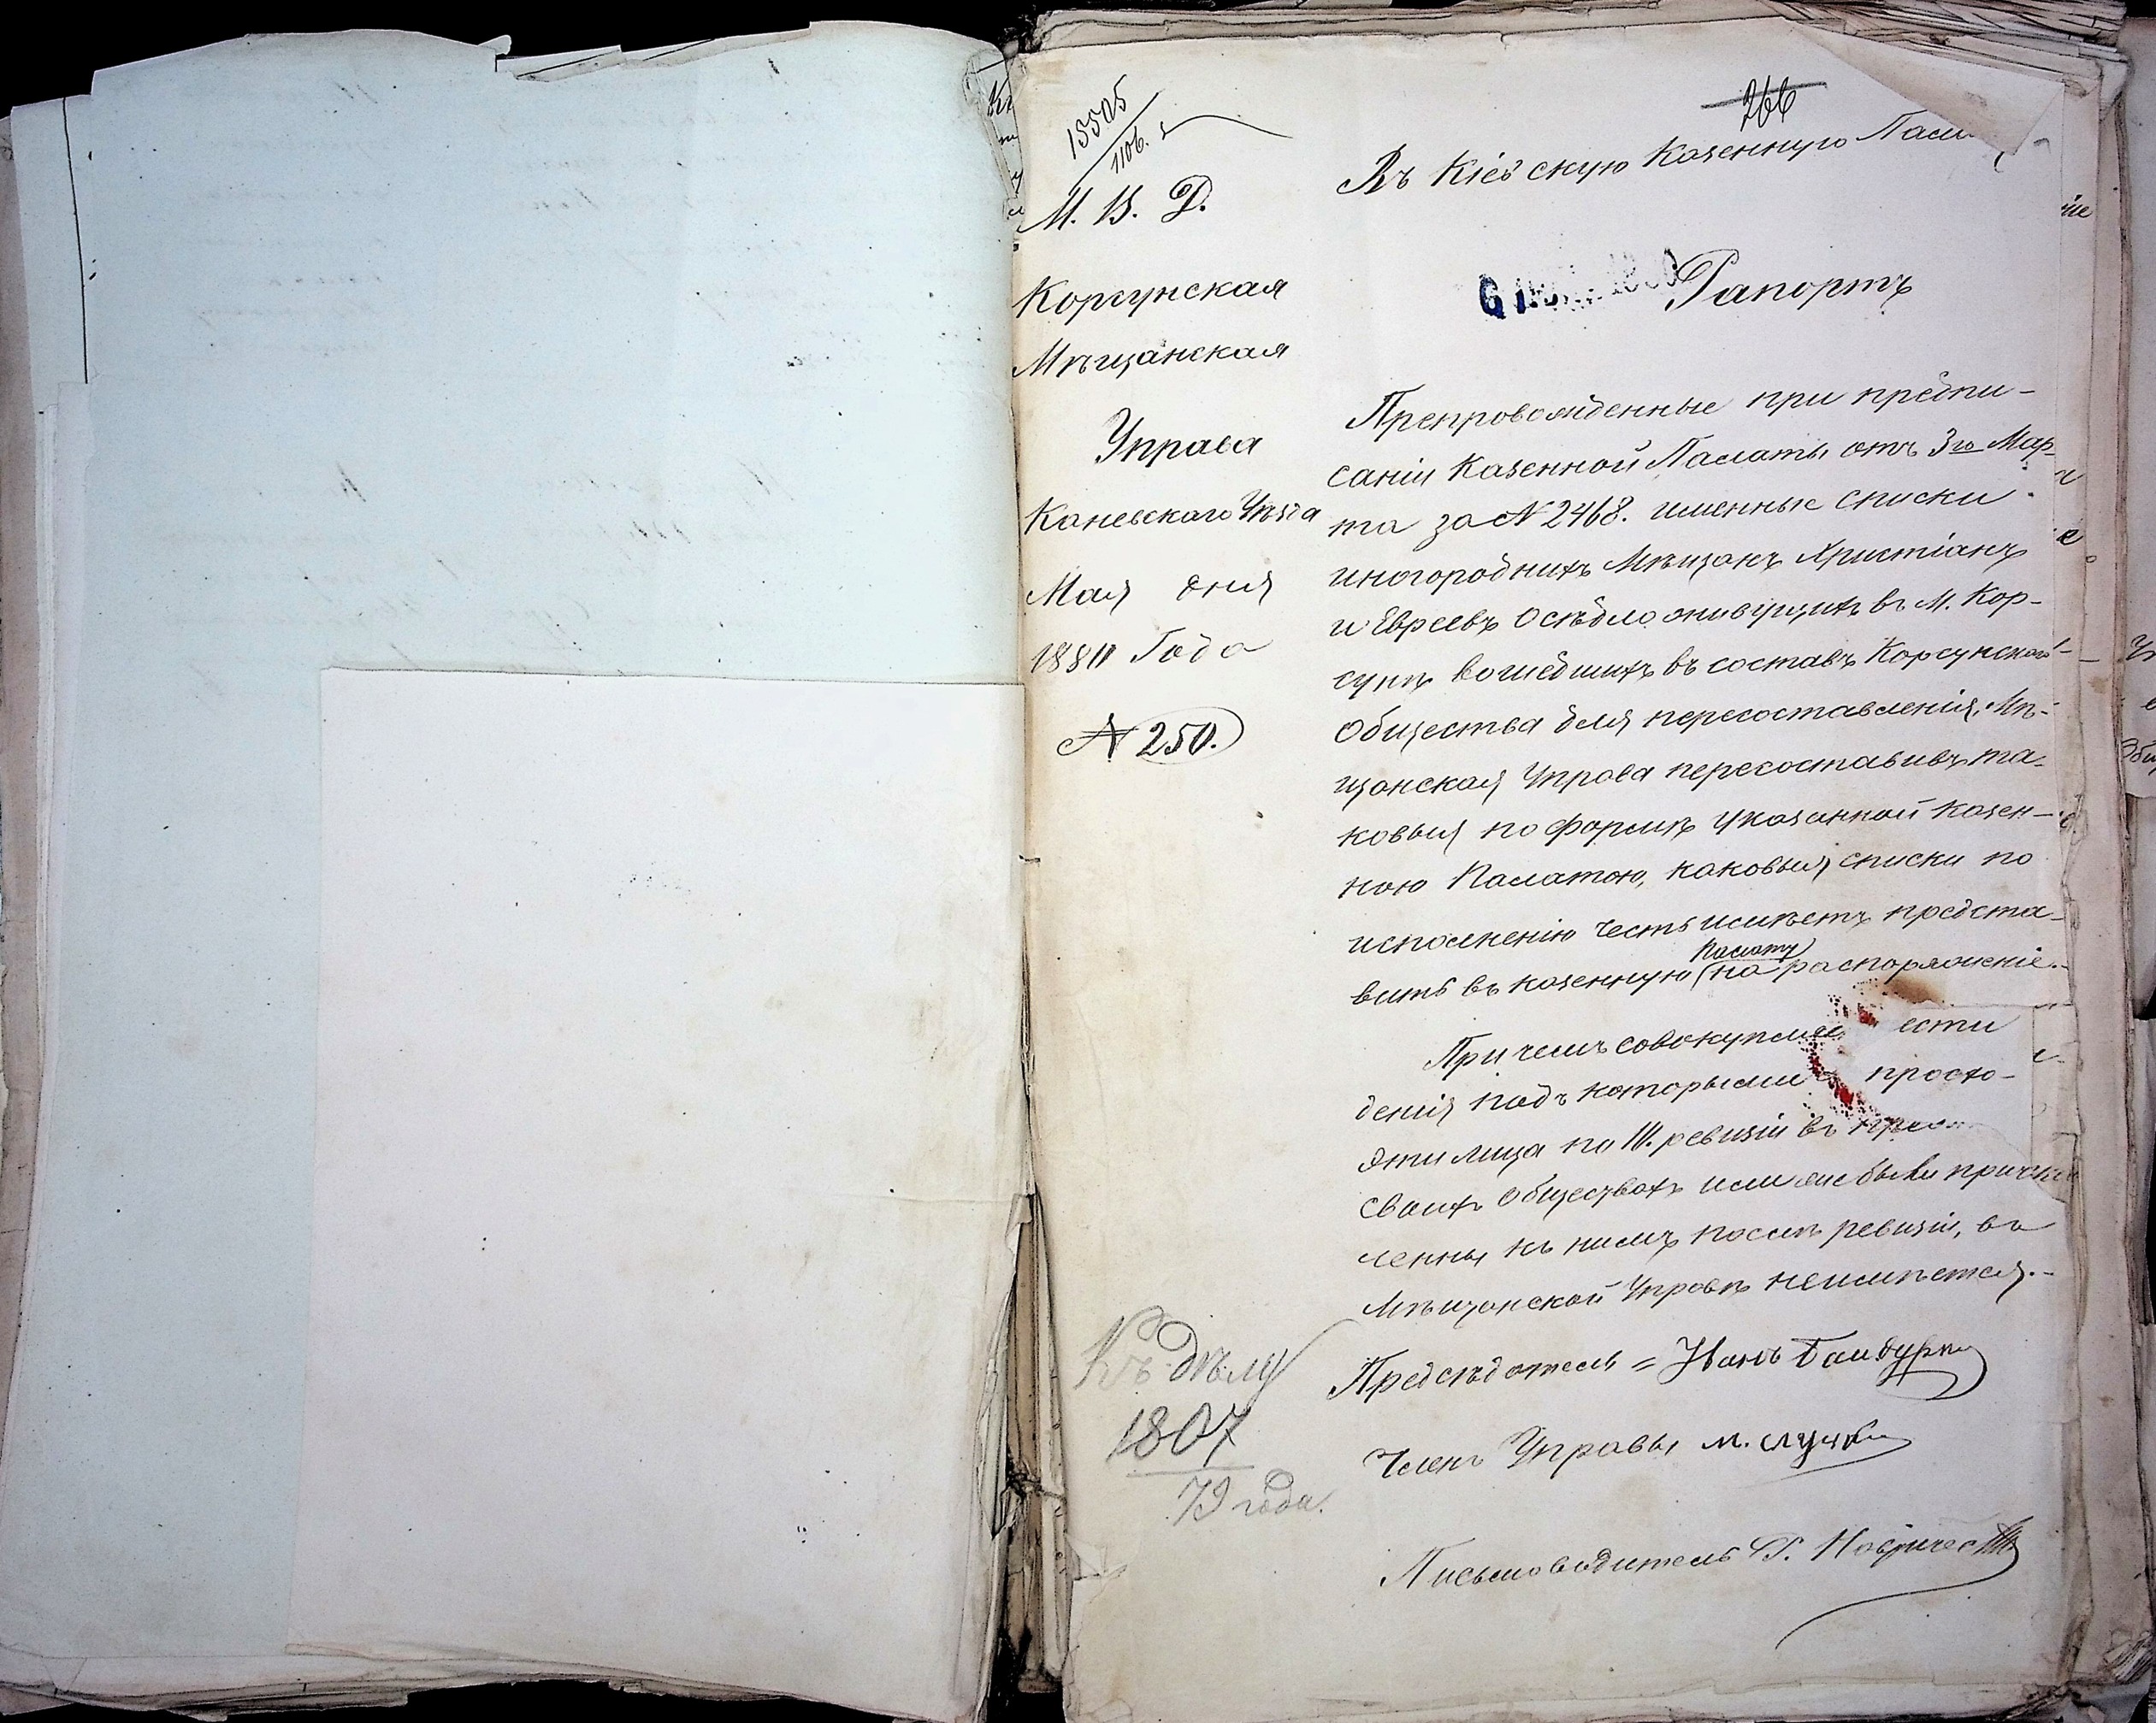 266
15505
М. В. Д.
Корсунская
Мѣщанская
Управа
Каневскаго Уѣзда
Мая дня
1880 Года
№ 250.
Къ дѣлу
1807
79 года.
Въ Кіевскую Казенную
Рапортъ
Препровожденные при предпи-
саніи Казенной Палаты отъ 3го Мар-
та за № 2468. именные списки
иногороднихъ Мѣщанъ Христіанъ
и Евреевъ осѣдло живущихъ въ М. Кор-
сунѣ вошедшихъ въ составъ Корсунскаго
Общества для пересоставленія, Мѣ-
щанская Управа пересоставивъ та-
ковыя по формѣ указанной Казен-
ною Палатою, каковыя списки по
исполненію честь имѣетъ предста-
вить въ казенную Палату на распоряженіе.
При чемъ совокупляе ести
денія подъ которыми прохо-
эти лица по 10. ревизіи въ
своихъ Обществахъ или же были причи-
ленны къ нимъ послѣ ревизіи, въ
Мѣщанской Управѣ неимѣется.
Предсѣдатель = Иванъ
Членъ Управы М.
Письмоводитель